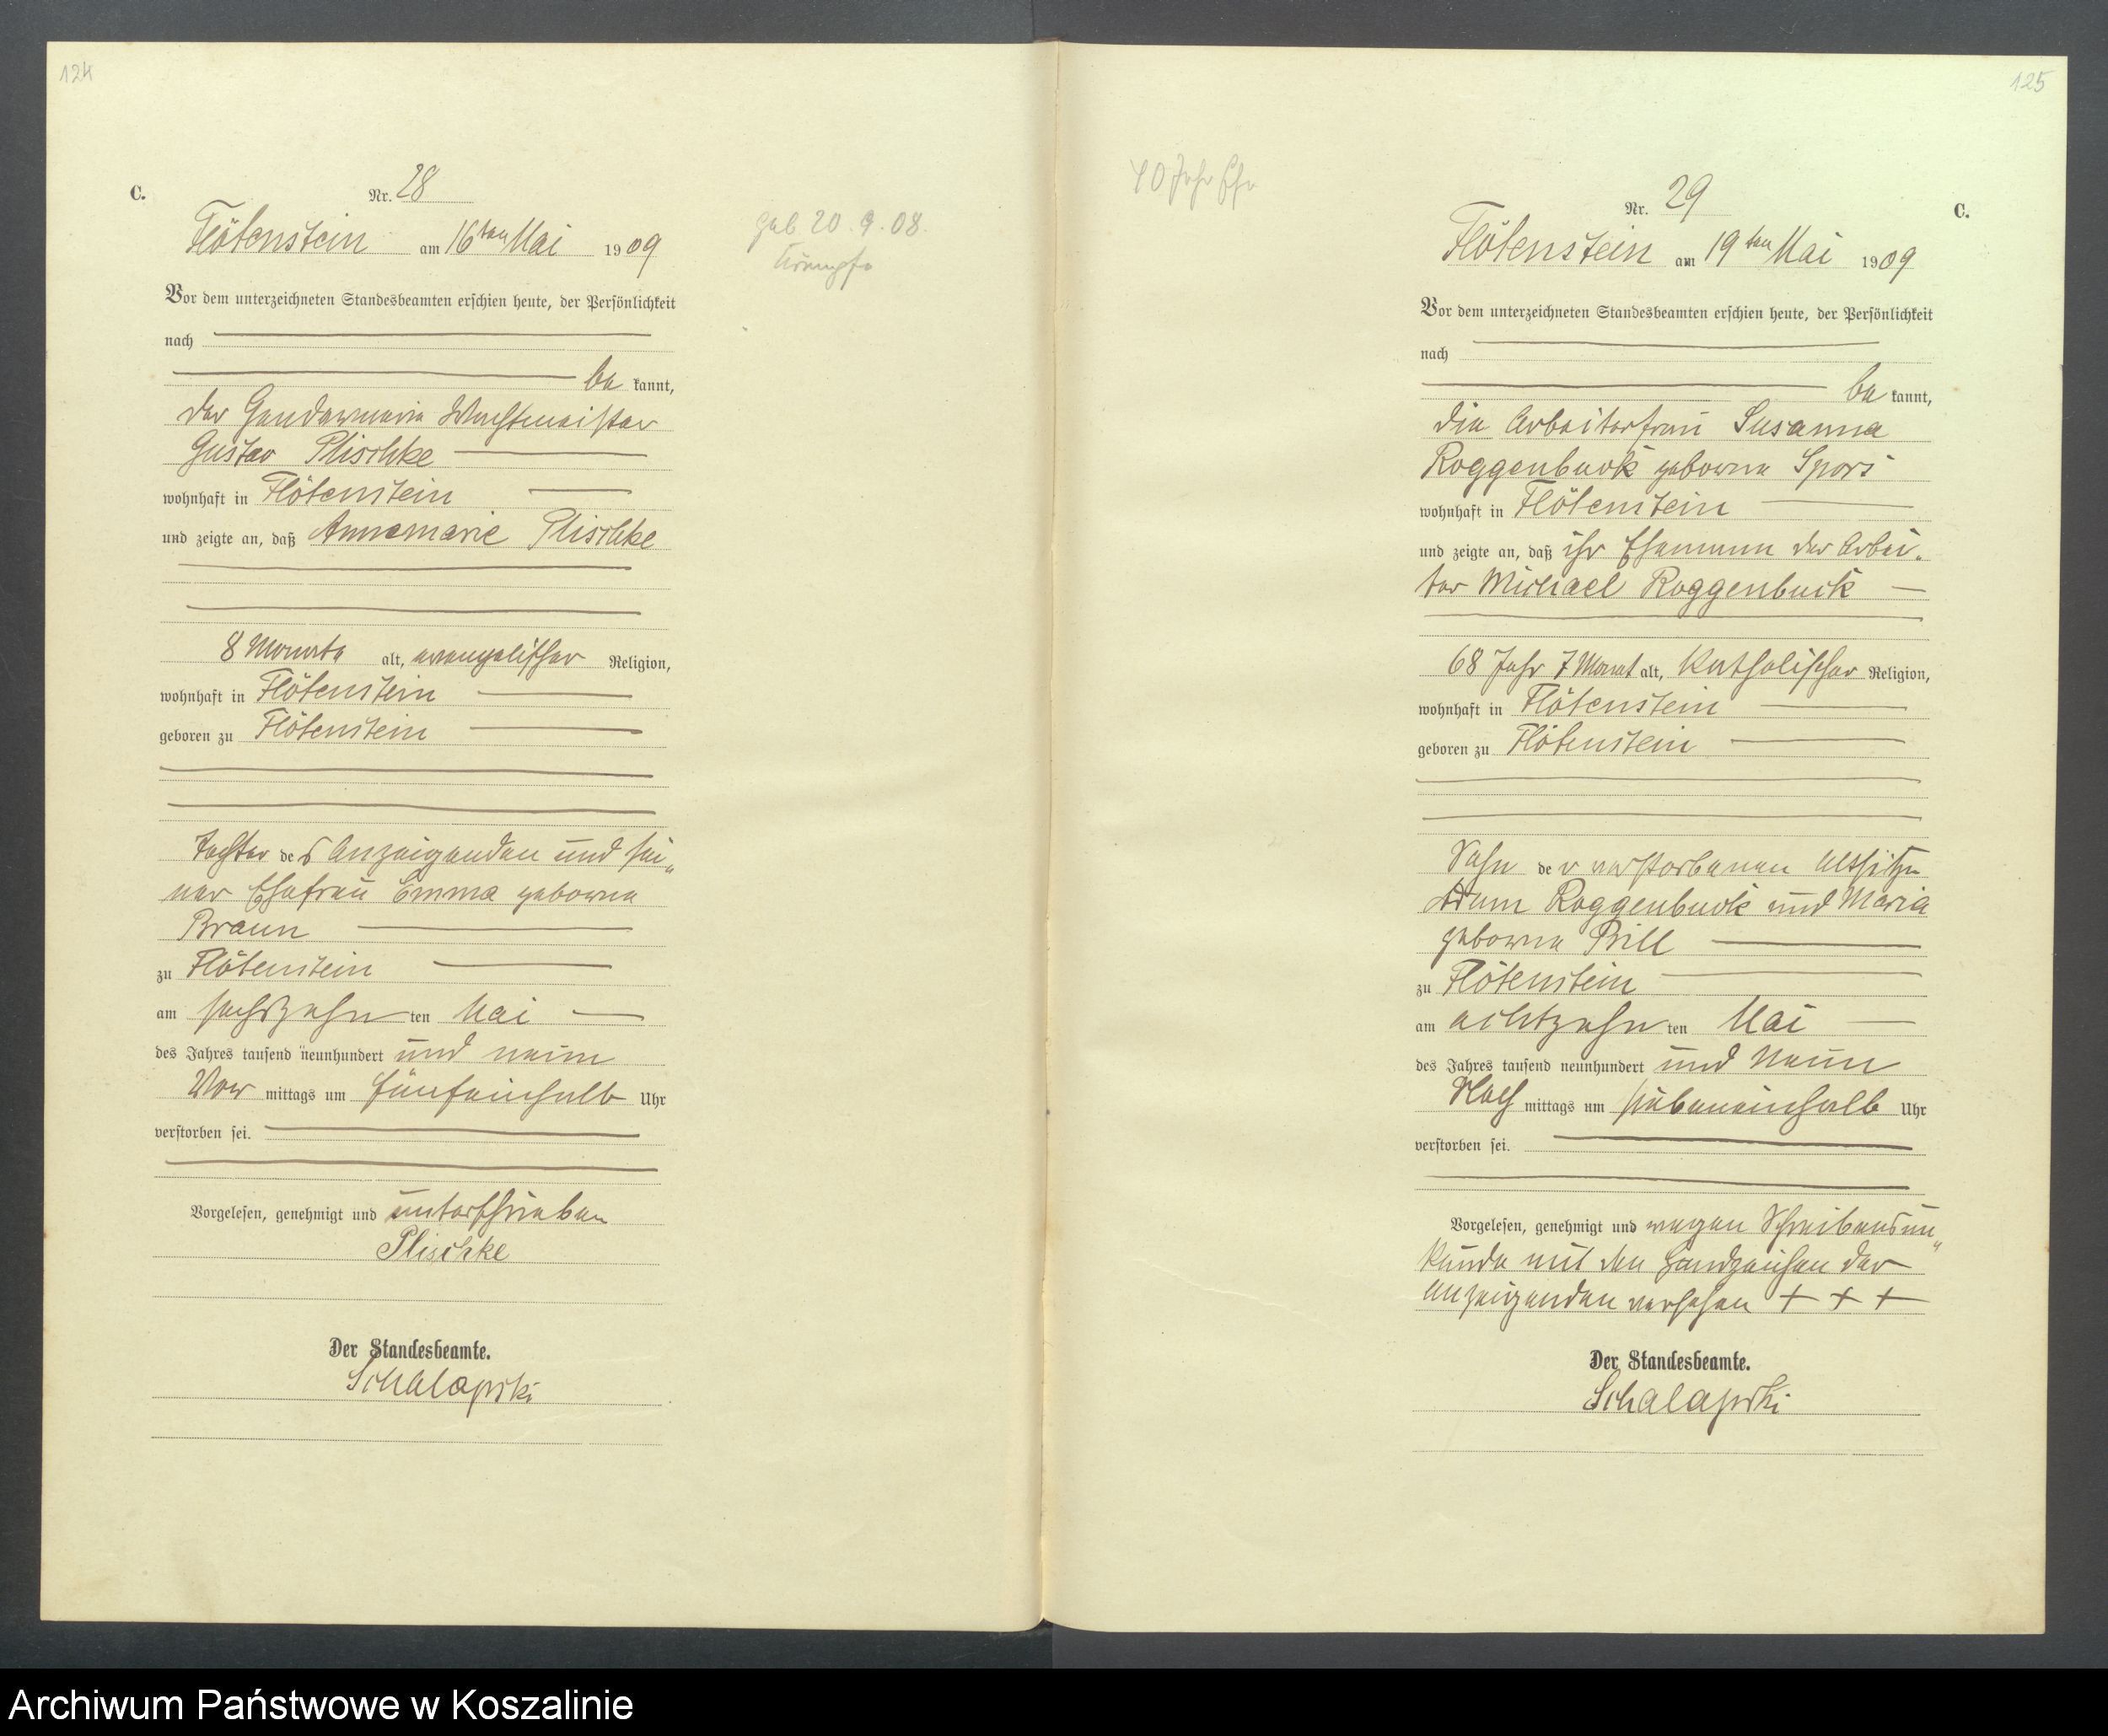 124
C.
Nr. 28
Flötenstein am 16ten Mai 1909
geb. 20.9.08.
Krämpfe
Vor dem unterzeichneten Standesbeamten erschien heute, der Persönlichkeit
nach
be kannt,
der Gendarmerie Wachtmeister
Gustav Plischke
wohnhaft in Flötenstein
und zeigte an, daß Annemarie Plischke
8 Monate alt, evangelischer Religion,
wohnhaft in Flötenstein
geboren zu Flötenstein
Tochter des Anzeigenden und sei„
ner Ehefrau Emma geborne
Braun
zu Flötenstein
am sechszehn ten Mai
des Jahres tausend neunhundert und neun
Vor mittags um fünfeinhalb Uhr
verstorben sei.
Vorgelesen, genehmigt und unterschrieben
Plischke
Der Standesbeamte.
Schalapski
125
Nr. 29
C.
Flötenstein am 19ten Mai 1909
Vor dem unterzeichneten Standesbeamten erschien heute, der Persönlichkeit
nach
be kannt,
die Arbeiterfrau Susanna
Roggenbuck geborne Spors
wohnhaft in Flötenstein
und zeigte an, daß ihr Ehemann der Arbei„
ter Michael Roggenbuck
68 Jahr 7 Monat alt, katholischer Religion,
wohnhaft in Flötenstein
geboren zu Flötenstein
Sohn der verstorbenen Altsitzer
Adam Roggenbuck und Maria
geborne Prill
zu Flötenstein
am achtzehn ten Mai
des Jahres tausend neunhundert und neun
Nach mittags um siebeneinhalb Uhr
verstorben sei.
Vorgelesen, genehmigt und wegen Schreibensun„
kunde mit den Handzeichen der
Anzeigenden versehen + + +
Der Standesbeamte.
Schalapski
Archiwum Państwowe w Koszalinie